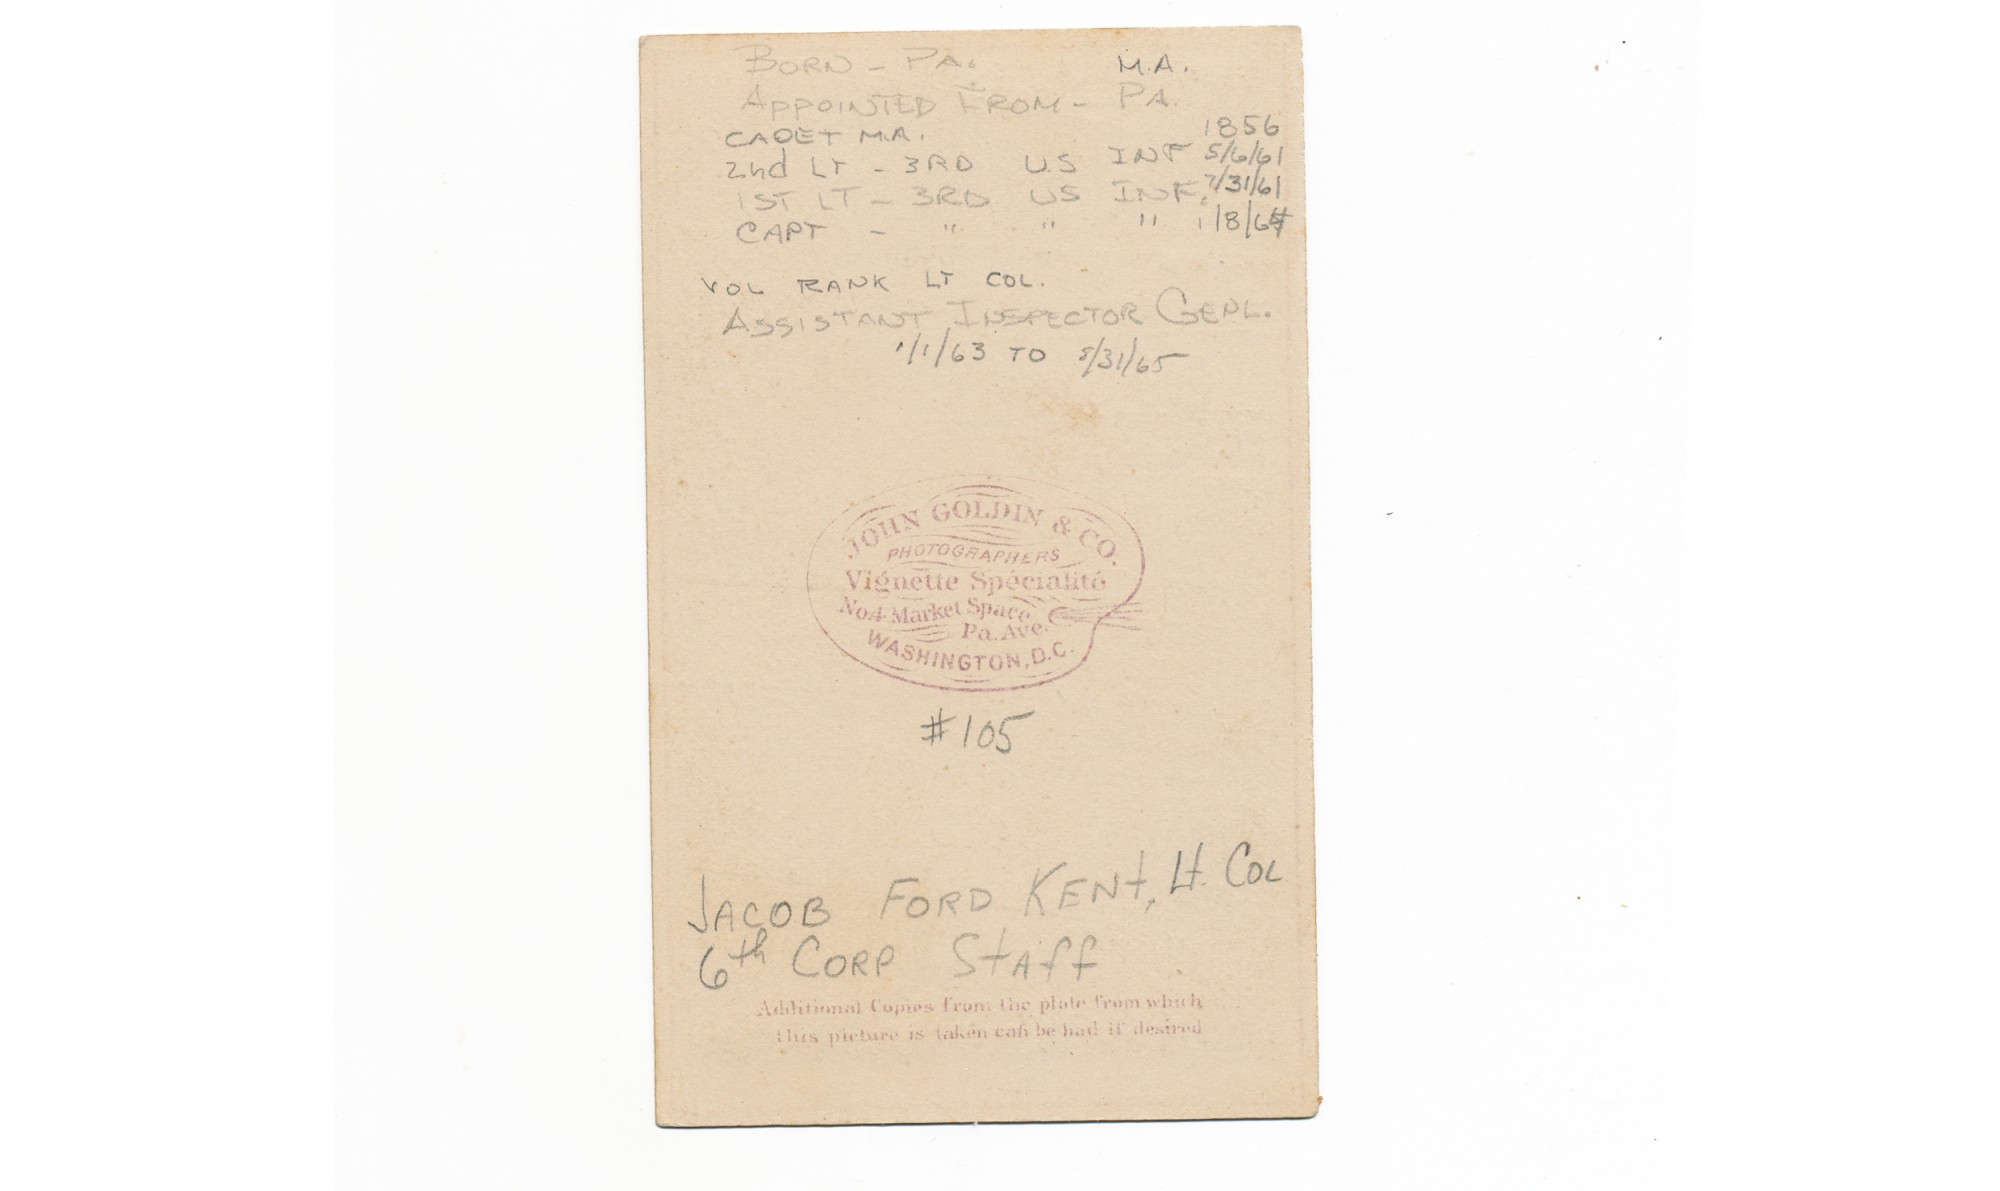 BORN - PA. M.A.
APPOINTED FROM - PA.
CADET M.A. 1856
2nd LT - 3RD US INF 5/6/61
1ST LT - 3RD US INF. 7/31/61
CAPT - " " " 1/8/64
VOL RANK LT COL.
ASSISTANT INSPECTOR GENL.
1/1/63 TO 8/31/65
JOHN GOLDIN & CO.
PHOTOGRAPHERS
Vignette Spécialité
No 4 Market Space
Pa. Ave.
WASHINGTON, D.C.
#105
JACOB FORD KENT, Lt. COL
6th CORP STAFF
Additional Copies from the plate from which
this picture is taken can be had if desired